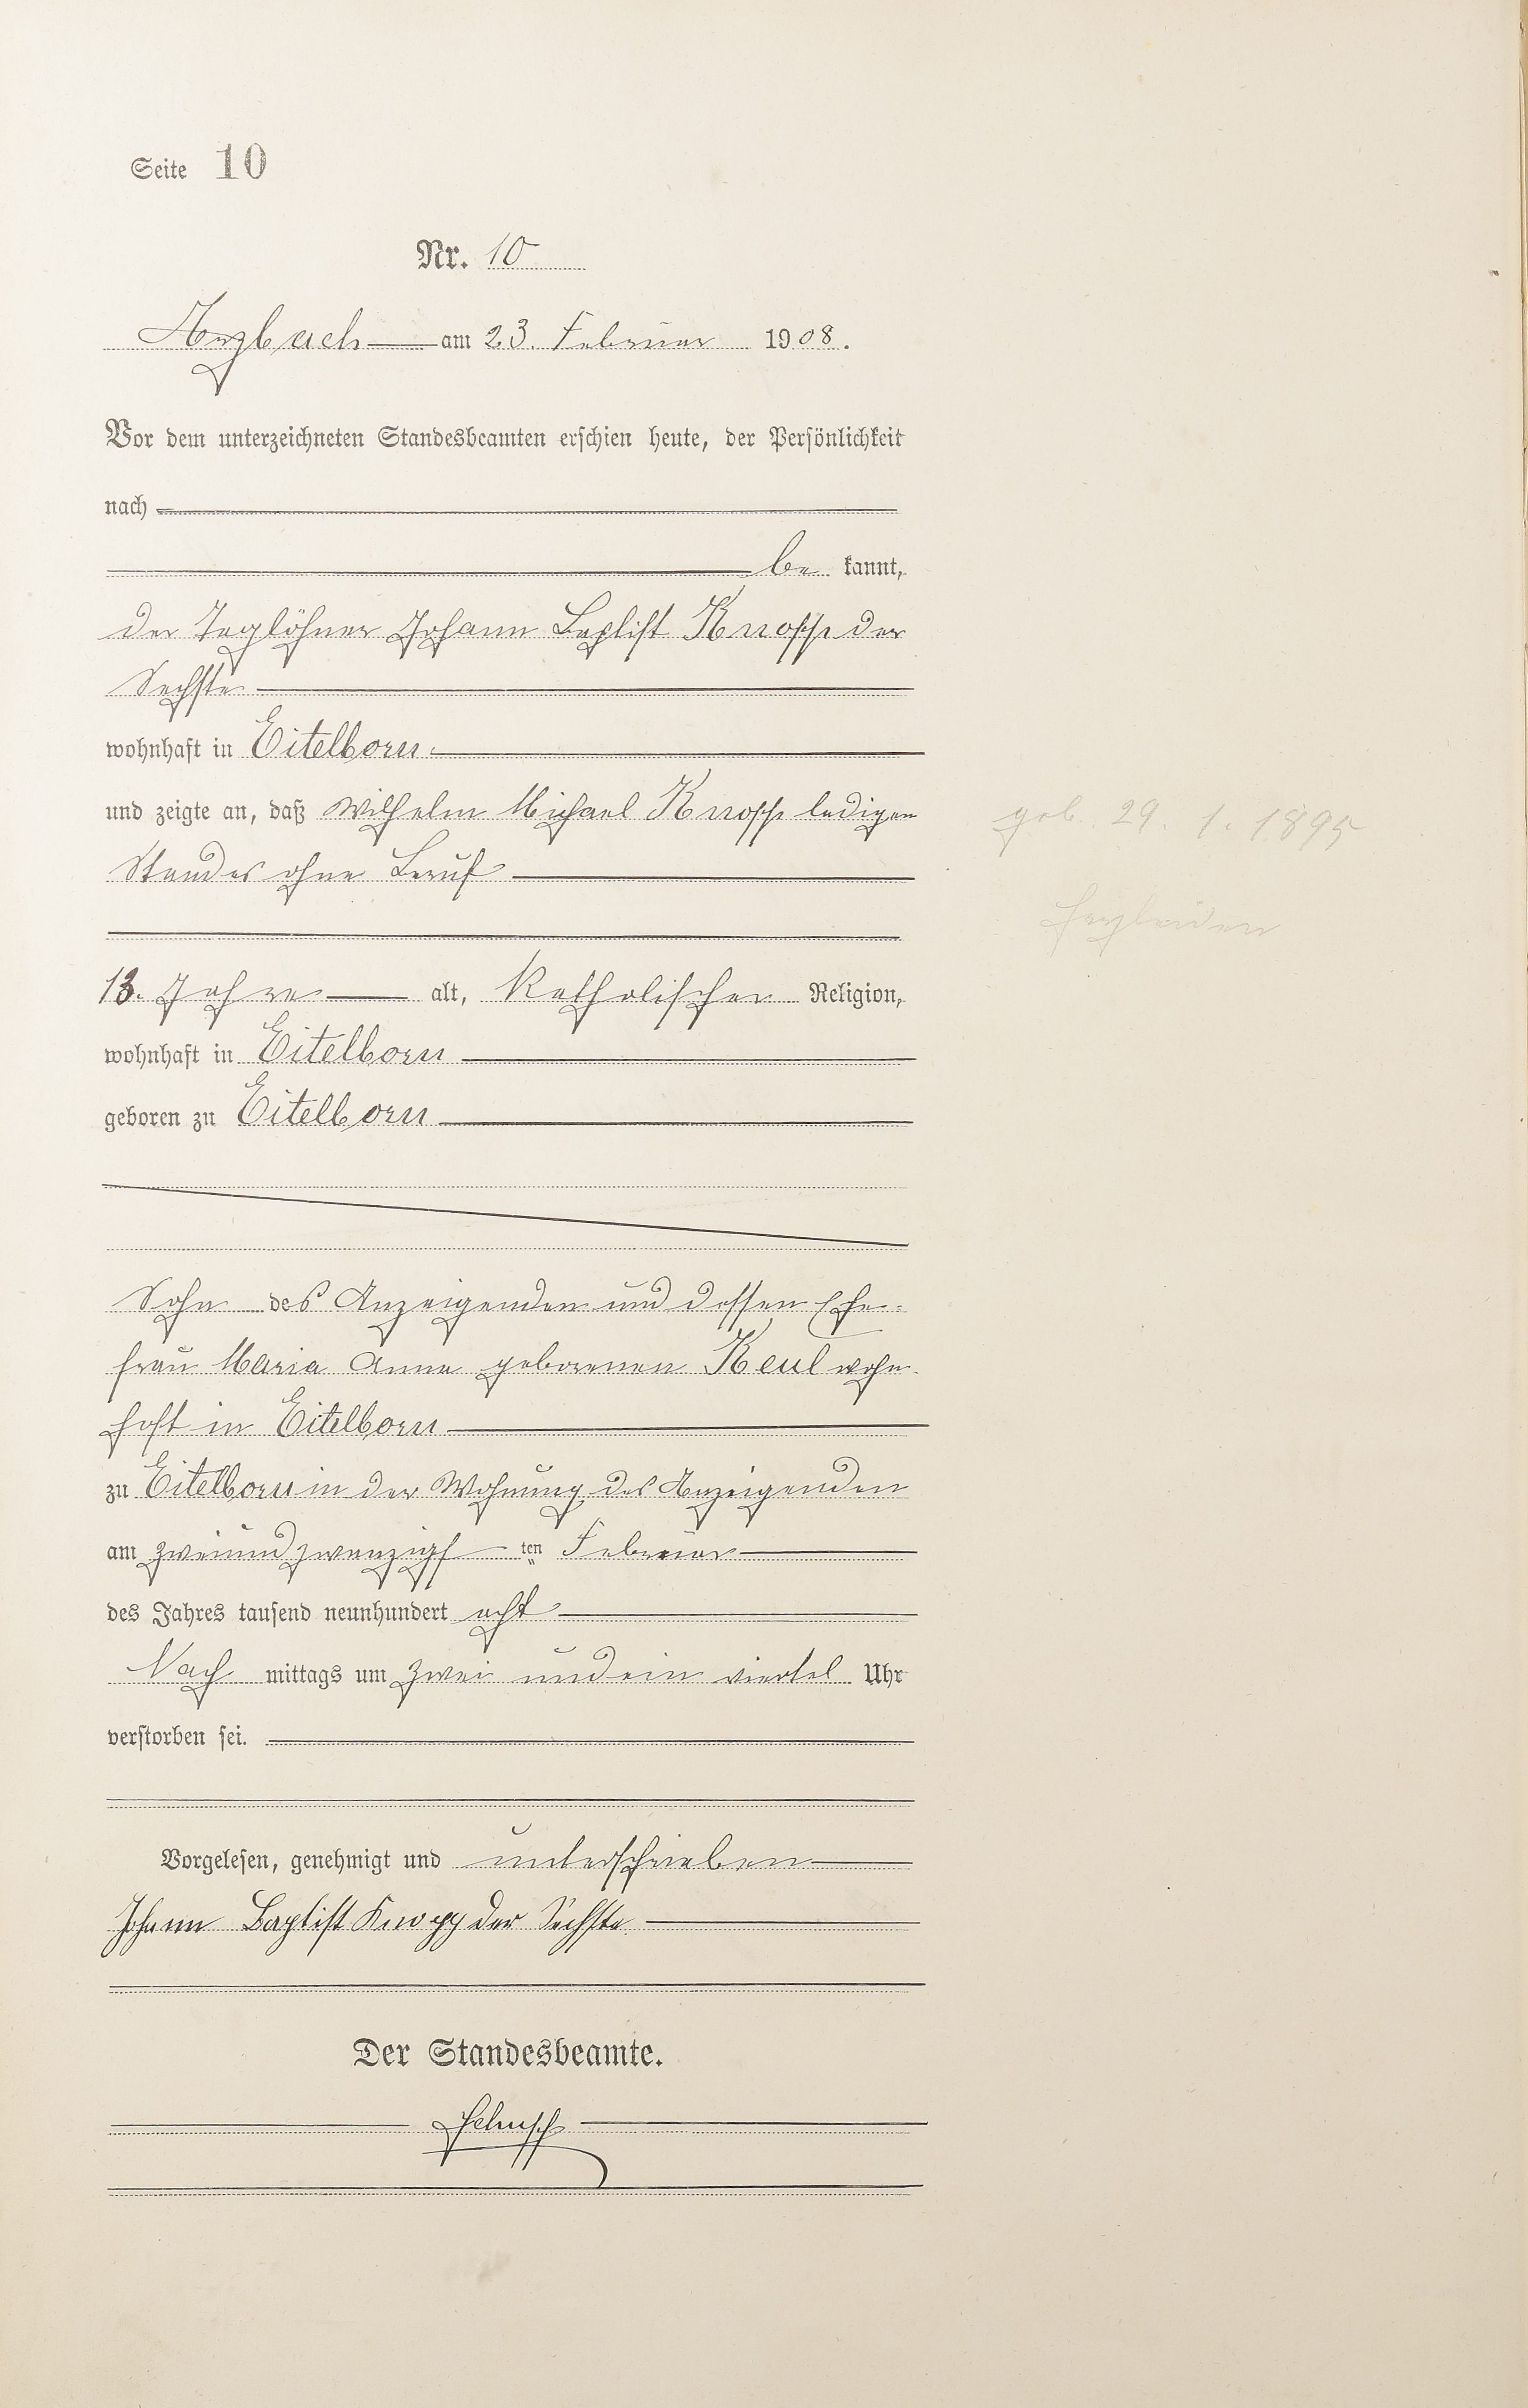 Seite 10
Nr. 10
Arzbach am 23. Februar 1908.
Vor dem unterzeichneten Standesbeamten erschien heute, der Persönlichkeit
nach
be kannt,
der Taglöhner Johann Baptist Knopp der
Sechste
wohnhaft in Eitelborn
und zeigte an, daß Wilhelm Michael Knopp ledigen
geb. 29. 1. 1895
Standes ohne Beruf
Herzleiden
13. Jahre alt, Katholischer Religion,
wohnhaft in Eitelborn
geboren zu Eitelborn
Sohn des Anzeigenden und dessen Ehe-
frau Maria Anna geborenen Keul wohn-
haft in Eitelborn
zu Eitelborn in der Wohnung des Anzeigenden
am zweiundzwanzigsten Februar
des Jahres tausend neunhundert acht
Nach mittags um zwei und ein viertel Uhr
verstorben sei.
Vorgelesen, genehmigt und unterschrieben
Johann Baptist Knopp der Sechste
Der Standesbeamte.